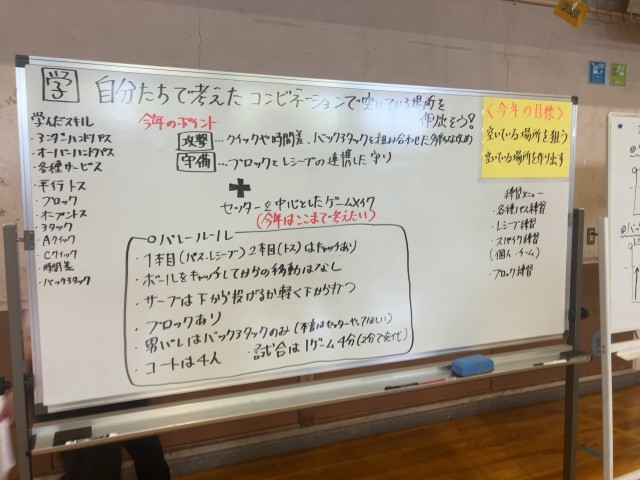 学 自分たちで考えたコンビネーションで空いている場所を
作り出そう!
学んだスキル
・アンダーハンドパス
・オーバーハンドパス
・各種サービス
・平行トス
・ブロック
・オープントス
・アタック
・Aクイック
・Cクイック
・時間差
・バックアタック
今年のポイント
攻撃…クイックや時間差、バックアタックを組み合わせた多彩な攻め
守備…ブロックとレシーブの連携した守り
+
セッターを中心としたゲームメイク
(今年はここまで考えたい)
○バレールール
・1本目(パス・レシーブ)2本目(トス)はキャッチあり
・ボールをキャッチしてからの移動はなし
・サーブは下から投げるか軽く下から打つ
・ブロックあり
・男バレはバックアタックのみ(本音はセッターやってほしい)
・コートは4人 ・試合は1ゲーム4分(2分で交代)
<今年の目標>
空いている場所を狙う
空いている場所を作り出す
練習メニュー
・各種パス練習
・レシーブ練習
・スパイク練習
(個人・チーム)
・ブロック練習